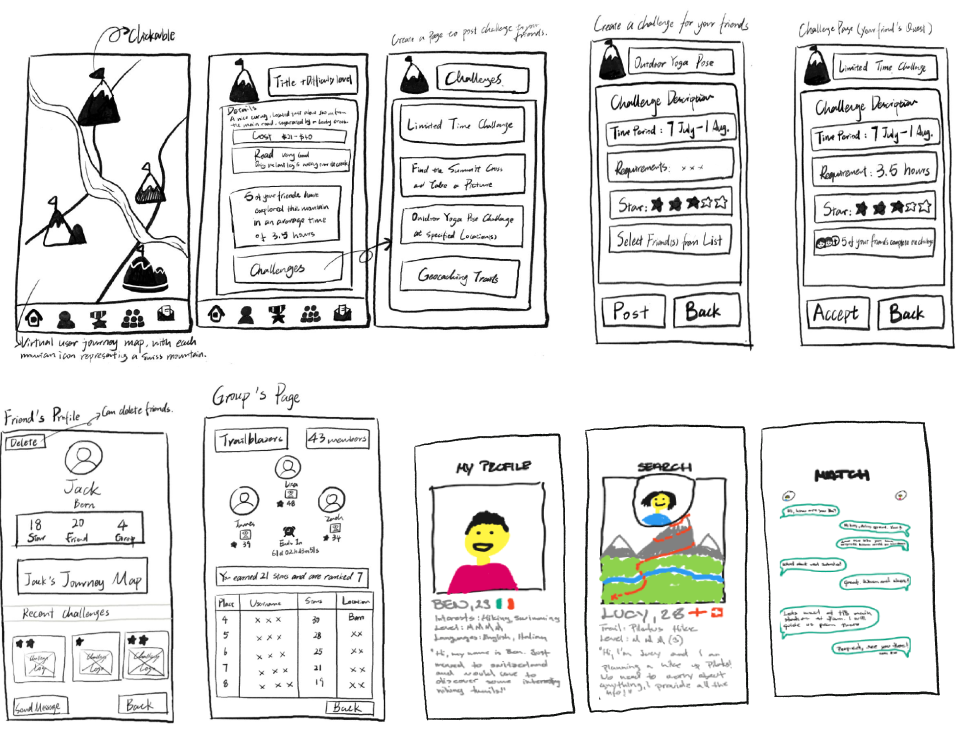 Clickable
Virtual user journey map, with each
mountain icon representing a Swiss mountain.
Title + Difficulty level
Details
Cost $21-$50
Read
5 of your friends have
explored the mountain
in an average time
of 3.5 hours
Challenges
Create a page to post challenge to your
friends.
Challenges
Limited Time Challenge
Find the Summit Cross
and Take a Picture
Outdoor Yoga Pose Challenge
at Specified Location(s)
Geocaching Trails
Create a challenge for your friends
Outdoor Yoga Pose
Challenge Description
Time Period: 7 July - 1 Aug.
Requirements: x x x
Star:
Select Friend(s) from List
Post
Back
Challenge Page (your friend's Quest)
Limited Time Challenge
Challenge Description
Time Period: 7 July - 1 Aug.
Requirement: 3.5 hours
Star:
5 of your friends
Accept
Back
Friend's Profile
Can delete friends.
Delete
Jack
Bern
18 20 4
Star Friend Group
Jack's Journey Map
Recent Challenges
Challenge Logo
Challenge Logo
Challenge Logo
Send Message
Back
Group's Page
Trailblazers
43 members
Lisa
48
James
39
34
Ends In
You earned 21 stars and are ranked 7
Place Username Score Location
4 x x x 30 Bern
5 x x x 28 x x
6 x x x 25 x x
7 x x x 21 x x
8 x x x 19 x x
Back
MY PROFILE
BEN, 23
Interests: Hiking, Swimming
Level:
Languages: English, Italian
"Hi, my name is Ben. Just
moved to Switzerland
and would love to
discover some interesting
hiking trails!"
SEARCH
LUCY, 28
Trail: Pilatus Hike
Level: (3)
"Hi, I'm Lucy and I am
planning a hike to Pilatus!
No need to worry about
anything, I provide all the
info!"
MATCH
Hi, how are you Ben?
Perfect, see you then!